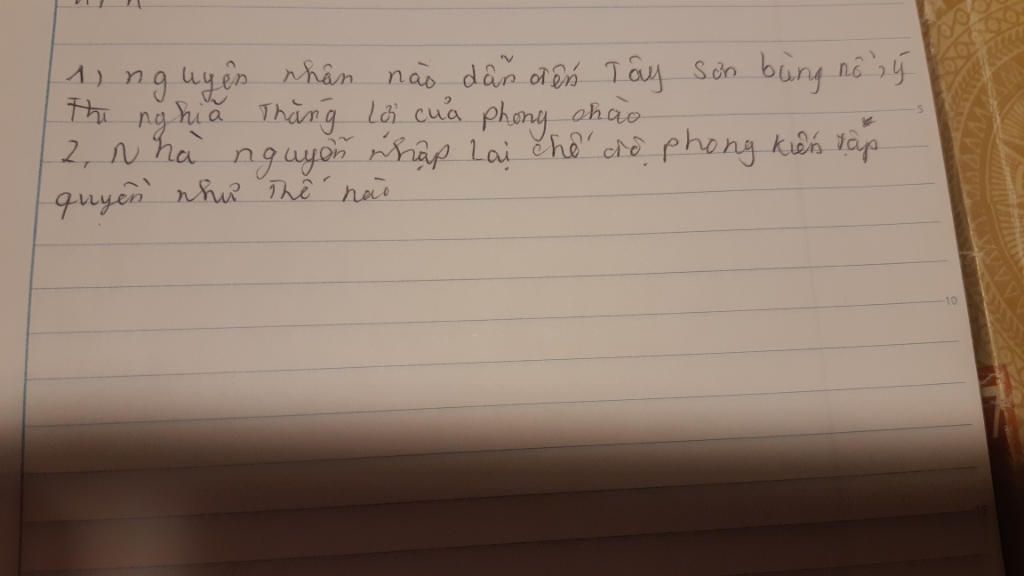 1, nguyên nhân nào dẫn đến Tây Sơn bùng nổ, ý
nghĩa Thắng lợi của phong chào
2, Nhà nguyễn nhập lại chế độ phong kiến tập
quyền như Thế nào